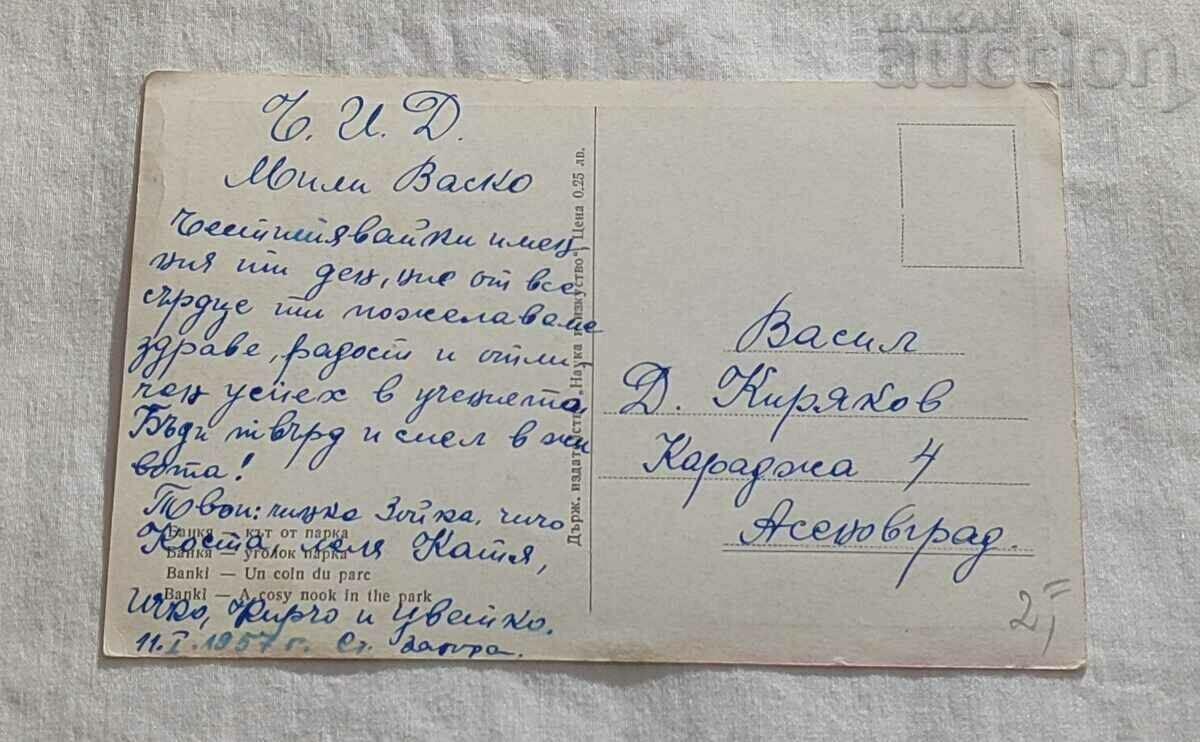 BALKAN
auction
Ч. И. Д.
Мили Васко
Честитявайки имен
ния ти ден, ние от все
сърдце ти пожелаваме
здраве, радост и отли
чен успех в ученето,
Бъди твърд и смел в жи
вота!
Твои: Зойка, чичо
Коста, леля Катя,
Ичко, Кирчо и Цветко.
11.I.1957 г. Ст. Загора.
Банкя — кът от парка
Банкя — уголок парка
Banki — Un coin du parc
Banki — A cosy nook in the park
Държ. издателство „Наука и изкуство“ Цена 0.25 лв.
Васил
Д. Киряков
Караджа 4
Асеновград.
2,=